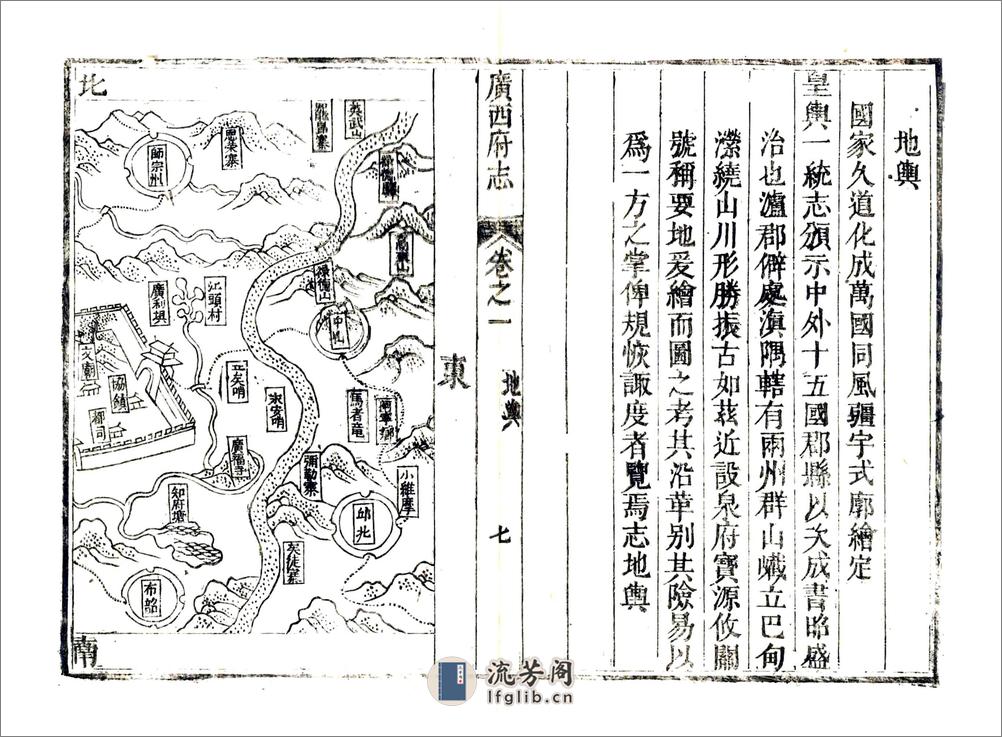 地輿
國家久道化成萬國同風疆宇式廓繪定
皇輿一統志頒示中外十五國郡縣以次成書昭盛
治也瀘郡僻處滇隅轄有兩州群山巘立巴甸
瀠繞山川形勝振古如茲近設泉府寶源攸關
號稱要地爰繪而圖之考其沿革别其險易以
爲一方之掌俾規恢諏度者覽焉志地輿
廣西府志
卷之一
地輿
七
東
北
南
英武山
師宗州
江頭村
廣利垻
文廟
協鎮
都司
淑安哨
廣福寺
彌勒寨
小維摩
邱北
知府塘
布韶
流芳阁
lfglib.cn